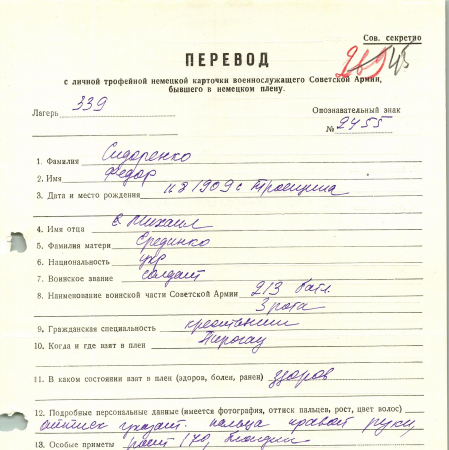 Сов. секретно
ПЕРЕВОД
с личной трофейной немецкой карточки военнослужащего Советской Армии,
бывшего в немецком плену.
Лагерь 339
Опознавательный знак
№ 2455
1. Фамилия Сидоренко
2. Имя Федор
3. Дата и место рождения 11 8 1909 с Троещина
4. Имя отца с. Михаил
5. Фамилия матери Срединко
6. Национальность укр
7. Воинское звание солдат
8. Наименование воинской части Советской Армии 213 батл.
3 рота
9. Гражданская специальность крестьянин
10. Когда и где взят в плен
11. В каком состоянии взят в плен (здоров, болен, ранен) здоров
12. Подробные персональные данные (имеется фотография, оттиск пальцев, рост, цвет волос)
оттиск указат. пальца правой руки,
13. Особые приметы рост 170, блондин